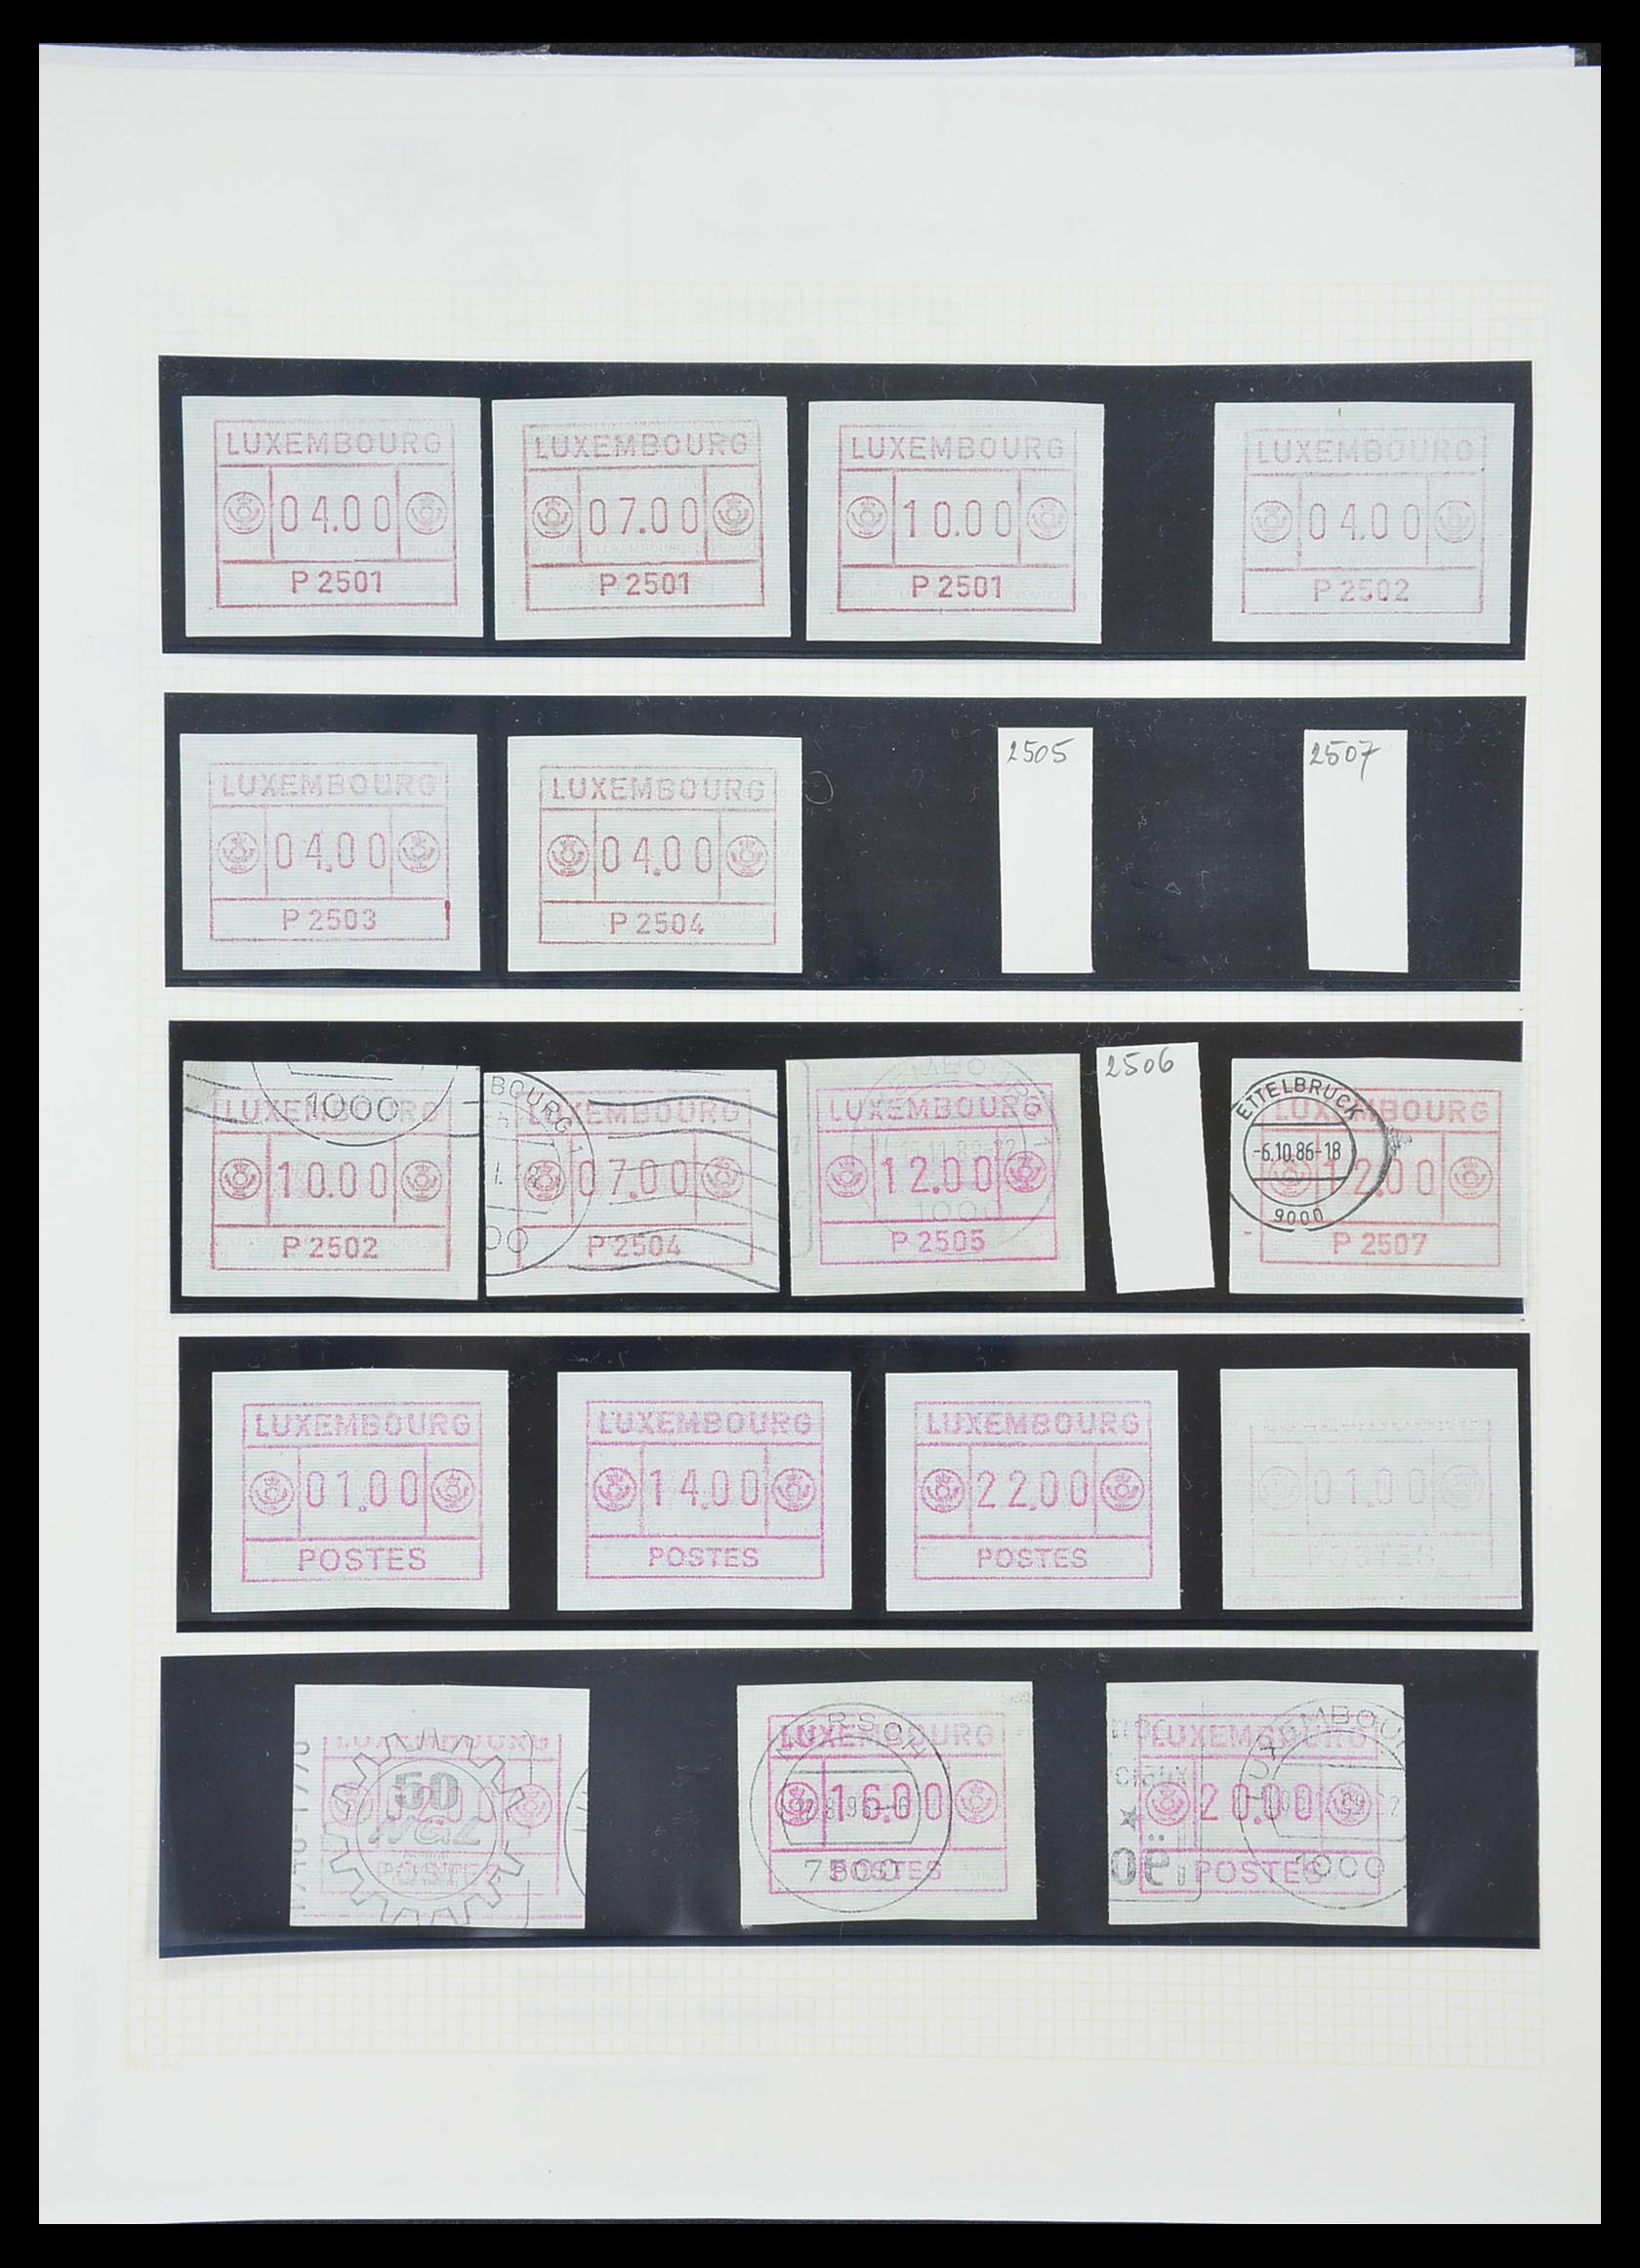 LUXEMBOURG
04.00
P 2501
LUXEMBOURG
07.00
P 2501
LUXEMBOURG
10.00
P 2501
LUXEMBOURG
04.00
P 2502
LUXEMBOURG
04.00
P 2503
LUXEMBOURG
04.00
P 2504
2505
2507
1000
LUXEMBOURG
10.00
P 2502
BOURG
LUXEMBOURG
07.00
P 2504
LUXEMBOURG
12.00
1000
P 2505
2506
ETTELBRUCK
LUXEMBOURG
-6.10.86-18
12.00
9000
P 2507
LUXEMBOURG
01.00
POSTES
LUXEMBOURG
14.00
POSTES
LUXEMBOURG
22.00
POSTES
01.00
LUXEMBOURG
50
POSTES
LUXEMBOURG
16.00
7500
POSTES
LUXEMBOURG
20.00
POSTES
1000